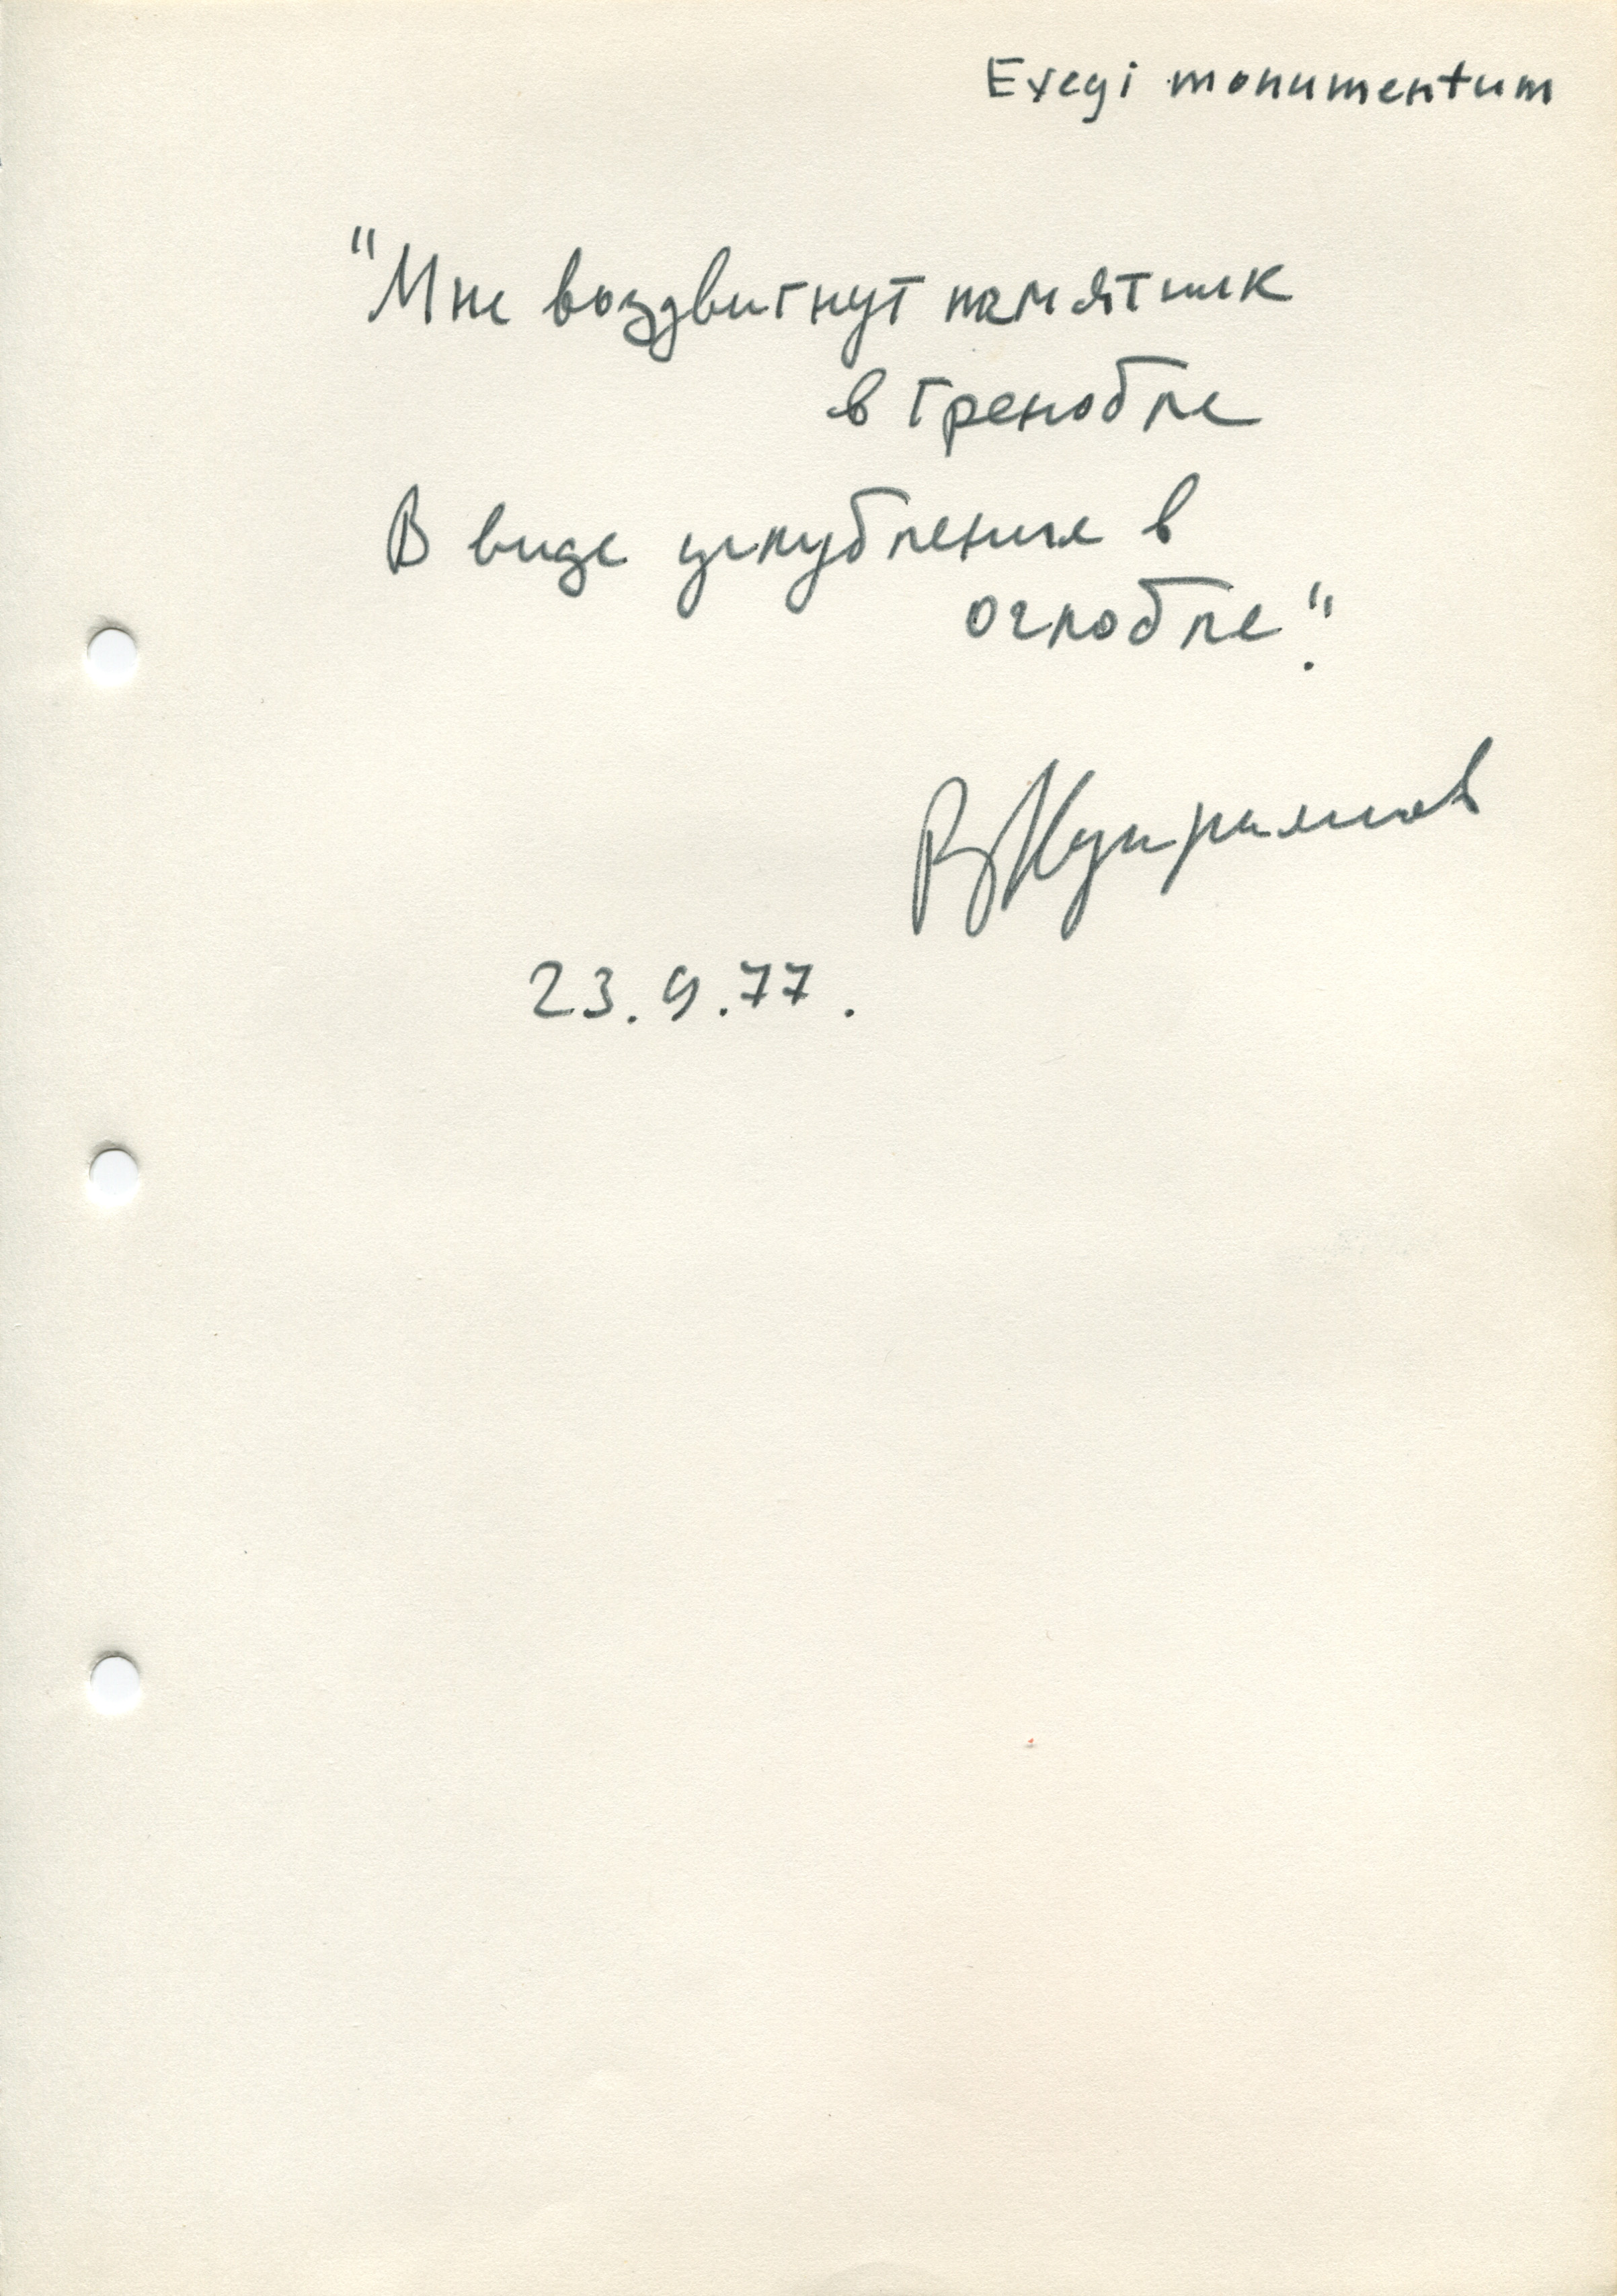 Exegi monumentum
"Мне воздвигнут памятник
в Гренобле
В виде углубления в
оглобле".
23.9.77.